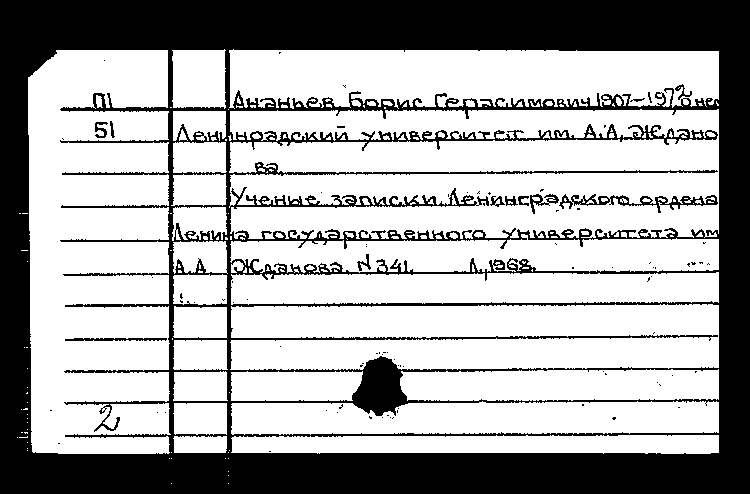 П1 Ананьев, Борис Герасимович 1907-1972, о нем
51 Ленинградский университет им. А.А. Ждано
ва.
Ученые записки Ленинградского ордена
Ленина государственного университета им
А.А. Жданова. N 341. Л., 1968.
2